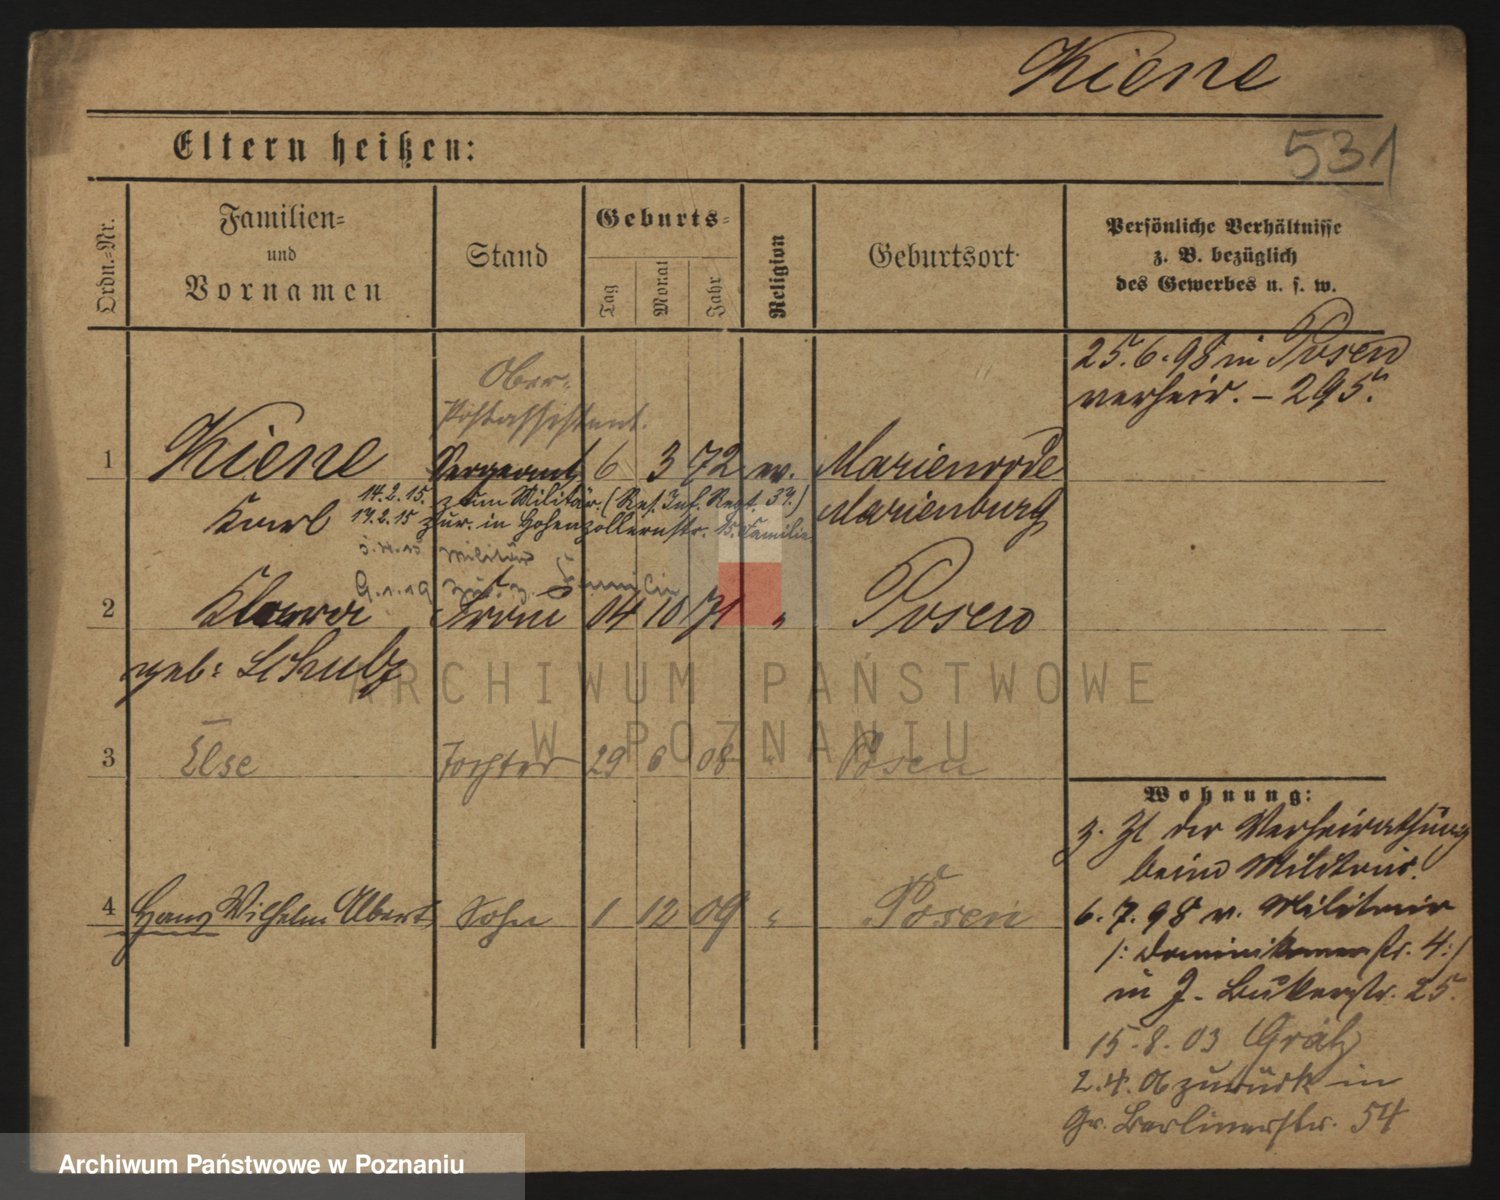 Kiene
531
Eltern heißen:
Ordn.-Nr.
Familien-
und
Vornamen
Stand
Geburts-
Tag
Monat
Jahr
Religion
Geburtsort
Persönliche Verhältnisse
z. B. bezüglich
des Gewerbes u. s. w.
25.6.98 in Posen
verheir. – 295.
Ober-
Postassistent.
1 Kiene Sergeant 6 3 72 ev. Marienrode
14.2.15. zum Militär. (Res. Inf. Regt. 37.)
Karl Marienburg
17.2.15 zur. in Hohenzollernstr. 15. Familie
Militär
9.1.19 zur. z. Familie
2 Klara Frau 04 10 71 " Posen
geb: Schulz
3 Else Tochter 29 6 08 " Posen
4 Hans Wilhelm Albert Sohn 1 12 09 " Posen
Wohnung:
z. Zt der Verheirathung
beim Militair.
6.7.98 v. Militair
/: Dominikanerstr. 4:/
in J. Bukerstr. 25.
15.8.03 Grätz
2.4.06 zurück in
Gr. Berlinerstr. 54
ARCHIWUM PAŃSTWOWE
W POZNANIU
Archiwum Państwowe w Poznaniu